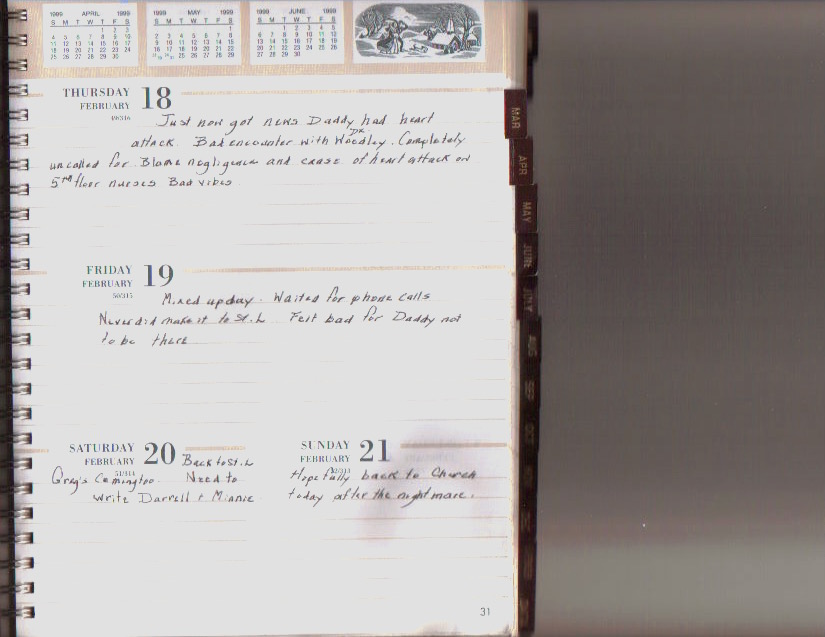 1999 APRIL 1999
S M T W T F S
1 2 3
4 5 6 7 8 9 10
11 12 13 14 15 16 17
18 19 20 21 22 23 24
25 26 27 28 29 30
1999 MAY 1999
S M T W T F S
1
2 3 4 5 6 7 8
9 10 11 12 13 14 15
16 17 18 19 20 21 22
23 24 25 26 27 28 29
30 31
1999 JUNE 1999
S M T W T F S
1 2 3 4 5
6 7 8 9 10 11 12
13 14 15 16 17 18 19
20 21 22 23 24 25 26
27 28 29 30
THURSDAY 18
FEBRUARY
49/316
Just now got news Daddy had heart
attack. Bad encounter with Dr Woodley. Completely
uncalled for. Blame negligence and cause of heart attack on
5th floor nurses Bad vibes
FRIDAY 19
FEBRUARY
50/315
Mixed up day. Waited for phone calls
Never did make it to St. L Felt bad for Daddy not
to be there
SATURDAY 20
FEBRUARY
51/314
Back to St. L
Greg's Coming too. Need to
write Darrell + Minnie
SUNDAY 21
FEBRUARY
52/313
Hopefully back to Church
today after the nightmare.
MAR
APR
MAY
JUNE
JULY
AUG
SEP
OCT
31